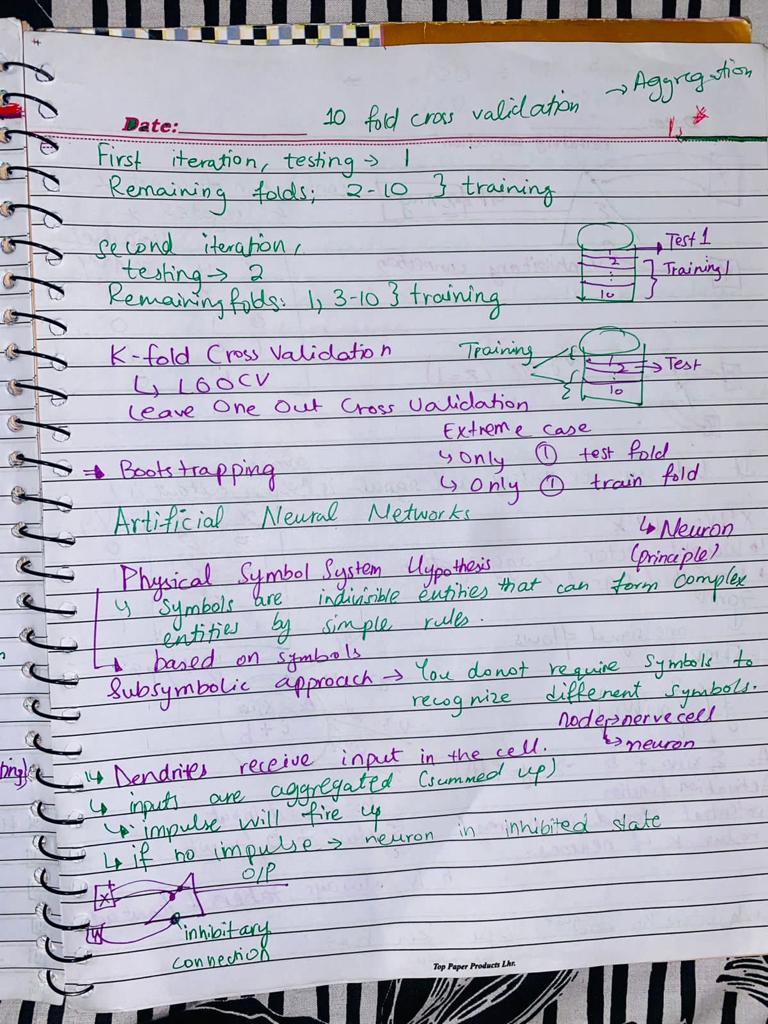 → Aggregation
Date: 10 fold cross validation
1.
First iteration, testing → 1
Remaining folds; 2-10 } training
Second iteration,
testing → 2
Remaining folds: 1, 3-10 } training
→ Test 1
1
2
10
] Training 1
K-fold Cross Validation
↳ LOOCV
Leave One Out Cross Validation
Training
1
2
10
→ Test
Extreme case
↳ only ① test fold
↳ only ① train fold
→ Bootstrapping
Artificial Neural Networks
↳ Neuron
(principle)
Physical Symbol System Hypothesis
↳ Symbols are indivisible entities that can form complex
entities by simple rules.
↳ based on symbols
Subsymbolic approach → You donot require symbols to
recognize different symbols.
node → nerve cell
↳ neuron
↳ Dendrites receive input in the cell.
↳ inputs are aggregated (summed up)
↳ impulse will fire up
↳ if no impulse → neuron in inhibited state
O/P
X
W
inhibitary
connection
Top Paper Products Lhr.